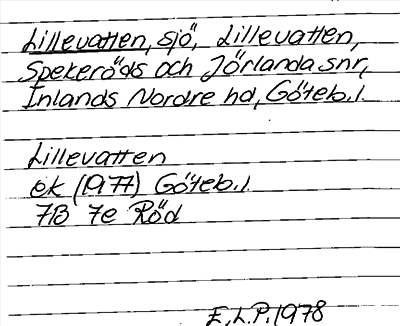 Lillevatten, sjö, Lillevatten,
Spekeröds och Jörlanda snr,
Inlands Nordre hd, Göteb.l.
Lillevatten
ek (1977) Göteb.l.
7B 7e Röd
E.L.P. 1978